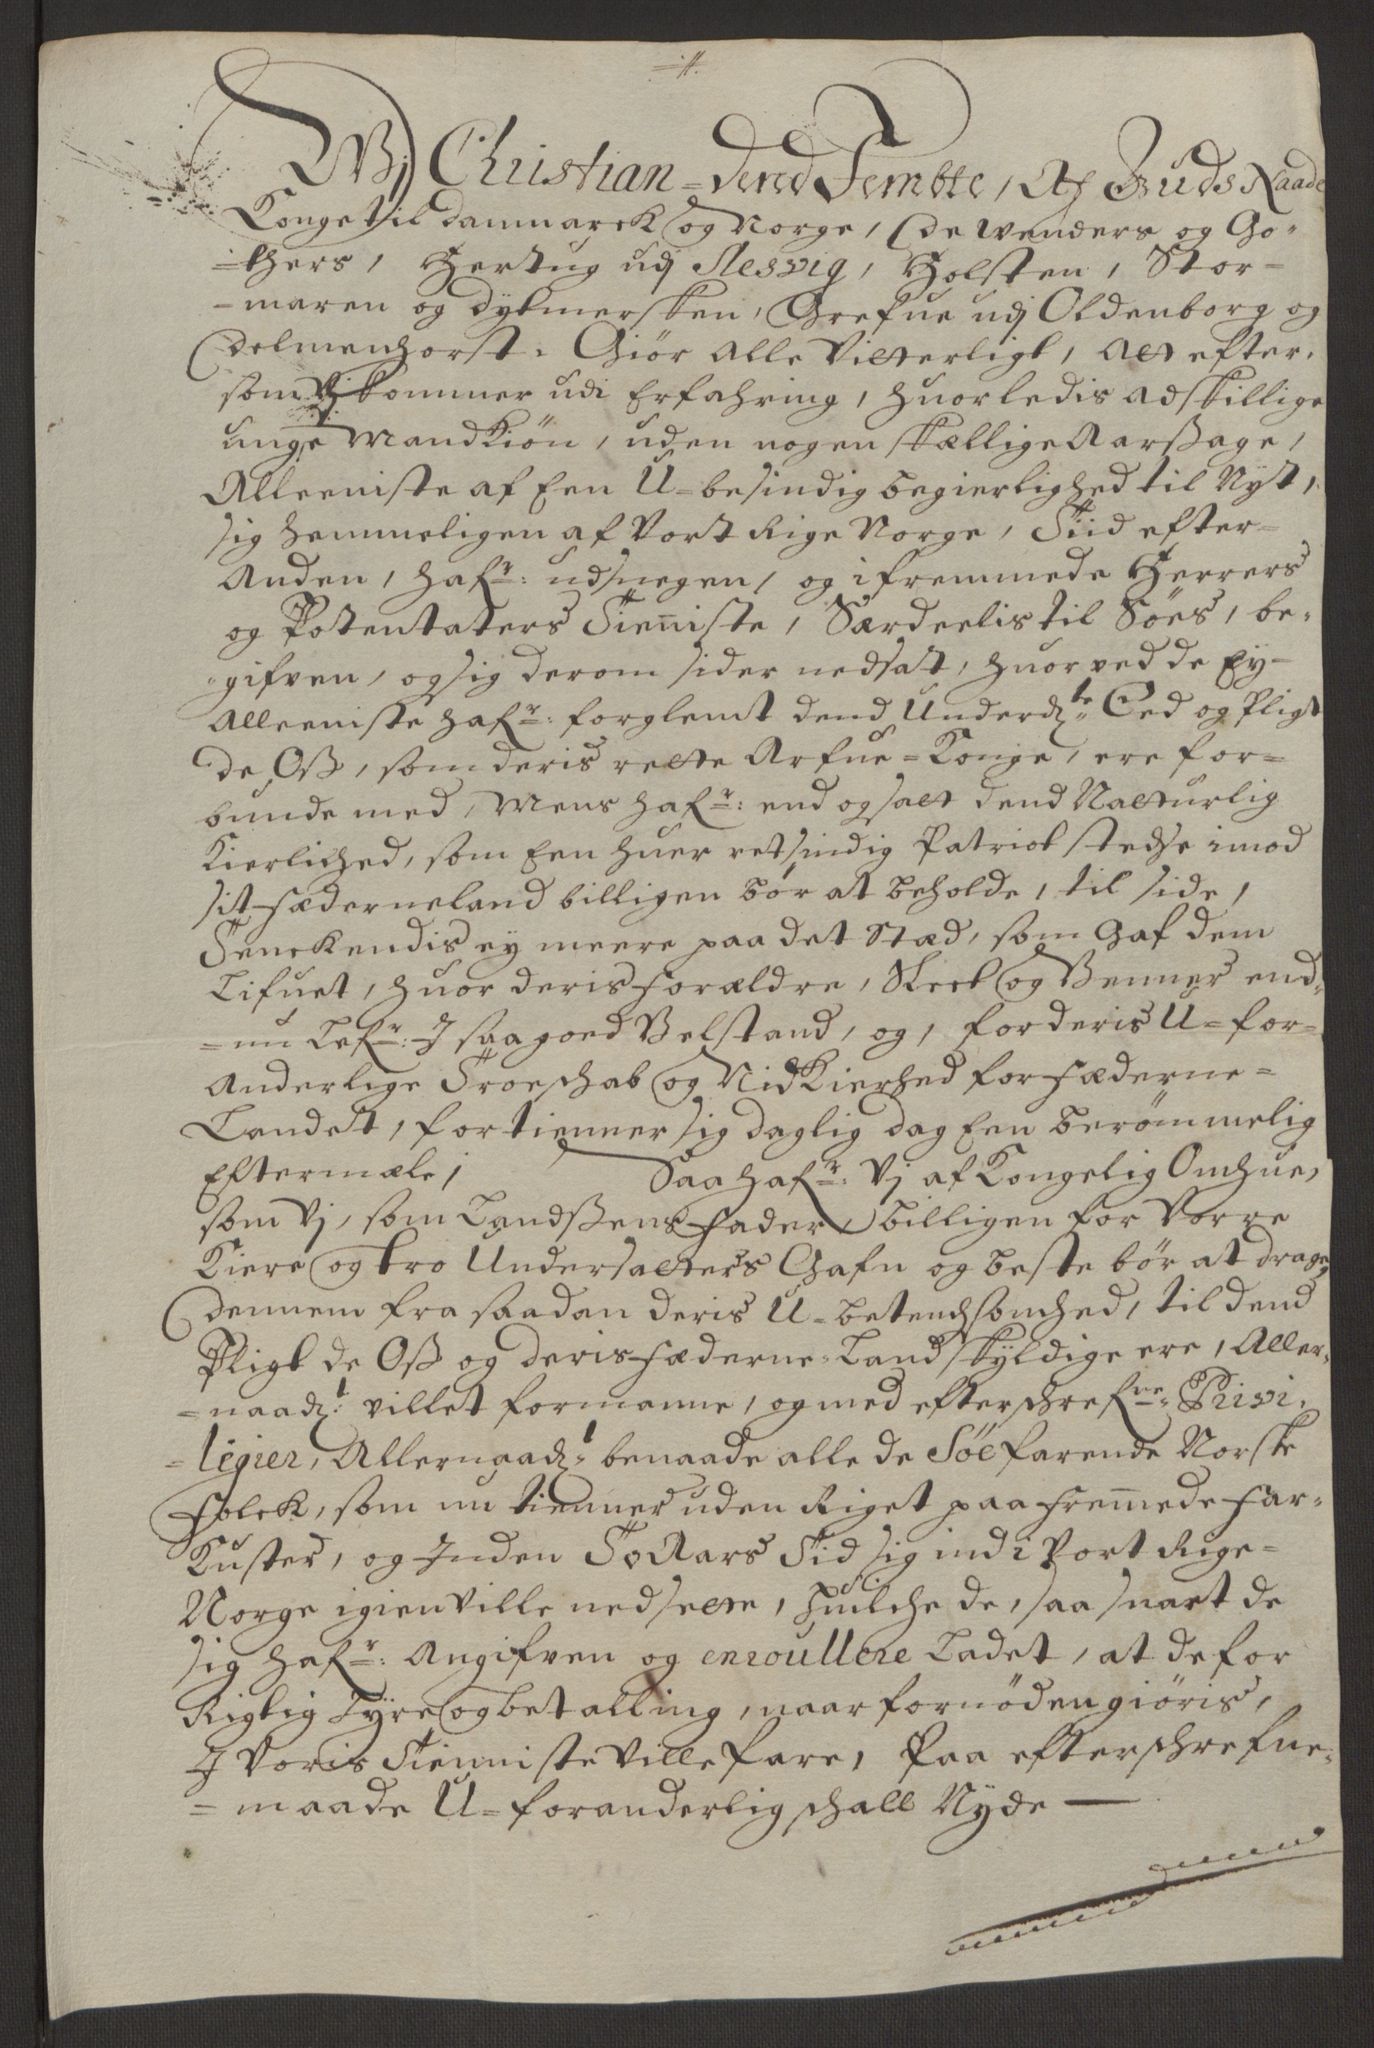 Wj Christian dend Fembte, Af Guds Naade
Konge til Danmarck og Norge, de Wenders og Go-
-thers, Hertug udj Slesvig, Holsten, Stor-
-maren og Dytmersken, Grefue udj Oldenborg og
Delmenhorst. Giör Alle Vitterligt, At efter-
som Vj kommer udi Erfahring, huorledis adskillige
unge Mandkiön, uden nogen skællige Aarßage,
Alleeniste af Een U-besindig begierlighed til Nyt,
sig hemmeligen af Vort Rige Norge, Tiid efter-
Anden, hafr: udsnegen, og i fremmede Herrers
og Potentaters Tieniste, Særdeelis til Söes, be-
-gifven, og sig derom sider nedsat, huor ved de Ey-
Alleeniste hafr: forglemt dend Underdte Eed og Pligt
de Oß, som deris rette Arfue-Konge, ere for-
bunde med, Mens hafr: end og satt dend Natturlig
Kierlighed, som Een huer retsindig Patriot stedse imod
sit Fæderneland billigen bör at beholde, til side,
Tenckendis ey meere paa det Stæd, som Gaf dem
Lifuet, huor deris Forældre, Slect og Venner end-
-nu Lefr: J saa goed Velstand, og, for deris U-for-
Anderlige Troeschab og Nidkierhed for Fæderne-
Landet, fortienner sig daglig dag Een berömmelig
Eftermæle, Saa hafr: Vj af Kongelig Omhue,
som Vj, som Landßens Fader, billigen for Vorre
Kiere og tro Undersatters Gafn og beste bör at drage,
dennem fra saadan deris U-betenchsomhed, til dend
Pligt de Oß og deris Fæderne-Land skyldige ere, Aller-
-naadt: villet formanne, og med efterschrefne: Privi-
-legier, Allernaadt: benaade alle de Söefarende Norske
Folck, som nu tienner uden Riget paa Fremmede Far-
Kuster, og Inden To Aars Tid sig ind i Vort Rige-
Norge igien ville nedsette, huilche de, saa snart de
sig hafr: Angifven og enroullere Ladet, at de for
Rigtig Hyre og betalling, naar fornöden giöris,
J Voris Tienniste ville fare, Paa efterschrefne-
-maade U-foranderlig schall Nyde